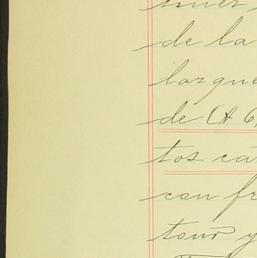 de la
largue
de (A 6,
tos ca
con fr
tour y